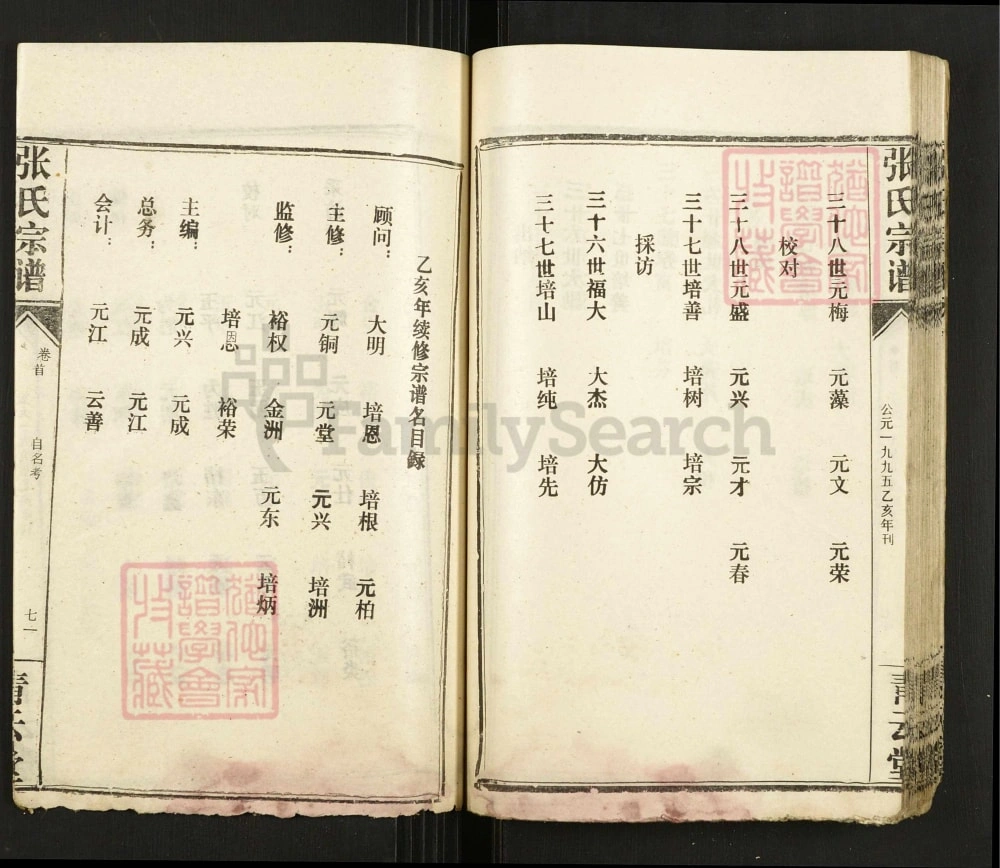 张氏宗谱
公元一九九五乙亥年刊
青云堂
三十八世元梅 元藻 元文 元荣
校对
三十八世元盛 元兴 元才 元春
三十七世培善 培树 培宗
採访
三十六世福大 大杰 大仿
三十七世培山 培纯 培先
乙亥年续修宗谱名目録
顾问： 大明 培恩 培根 元柏
主修： 元铜 元堂 元兴 培洲
监修： 裕权 金洲 元东 培炳
培恩 裕荣
主编： 元兴 元成
总务： 元成 元江
会计： 元江 云善
张氏宗谱
卷首
自名考
七一
青云堂
FamilySearch